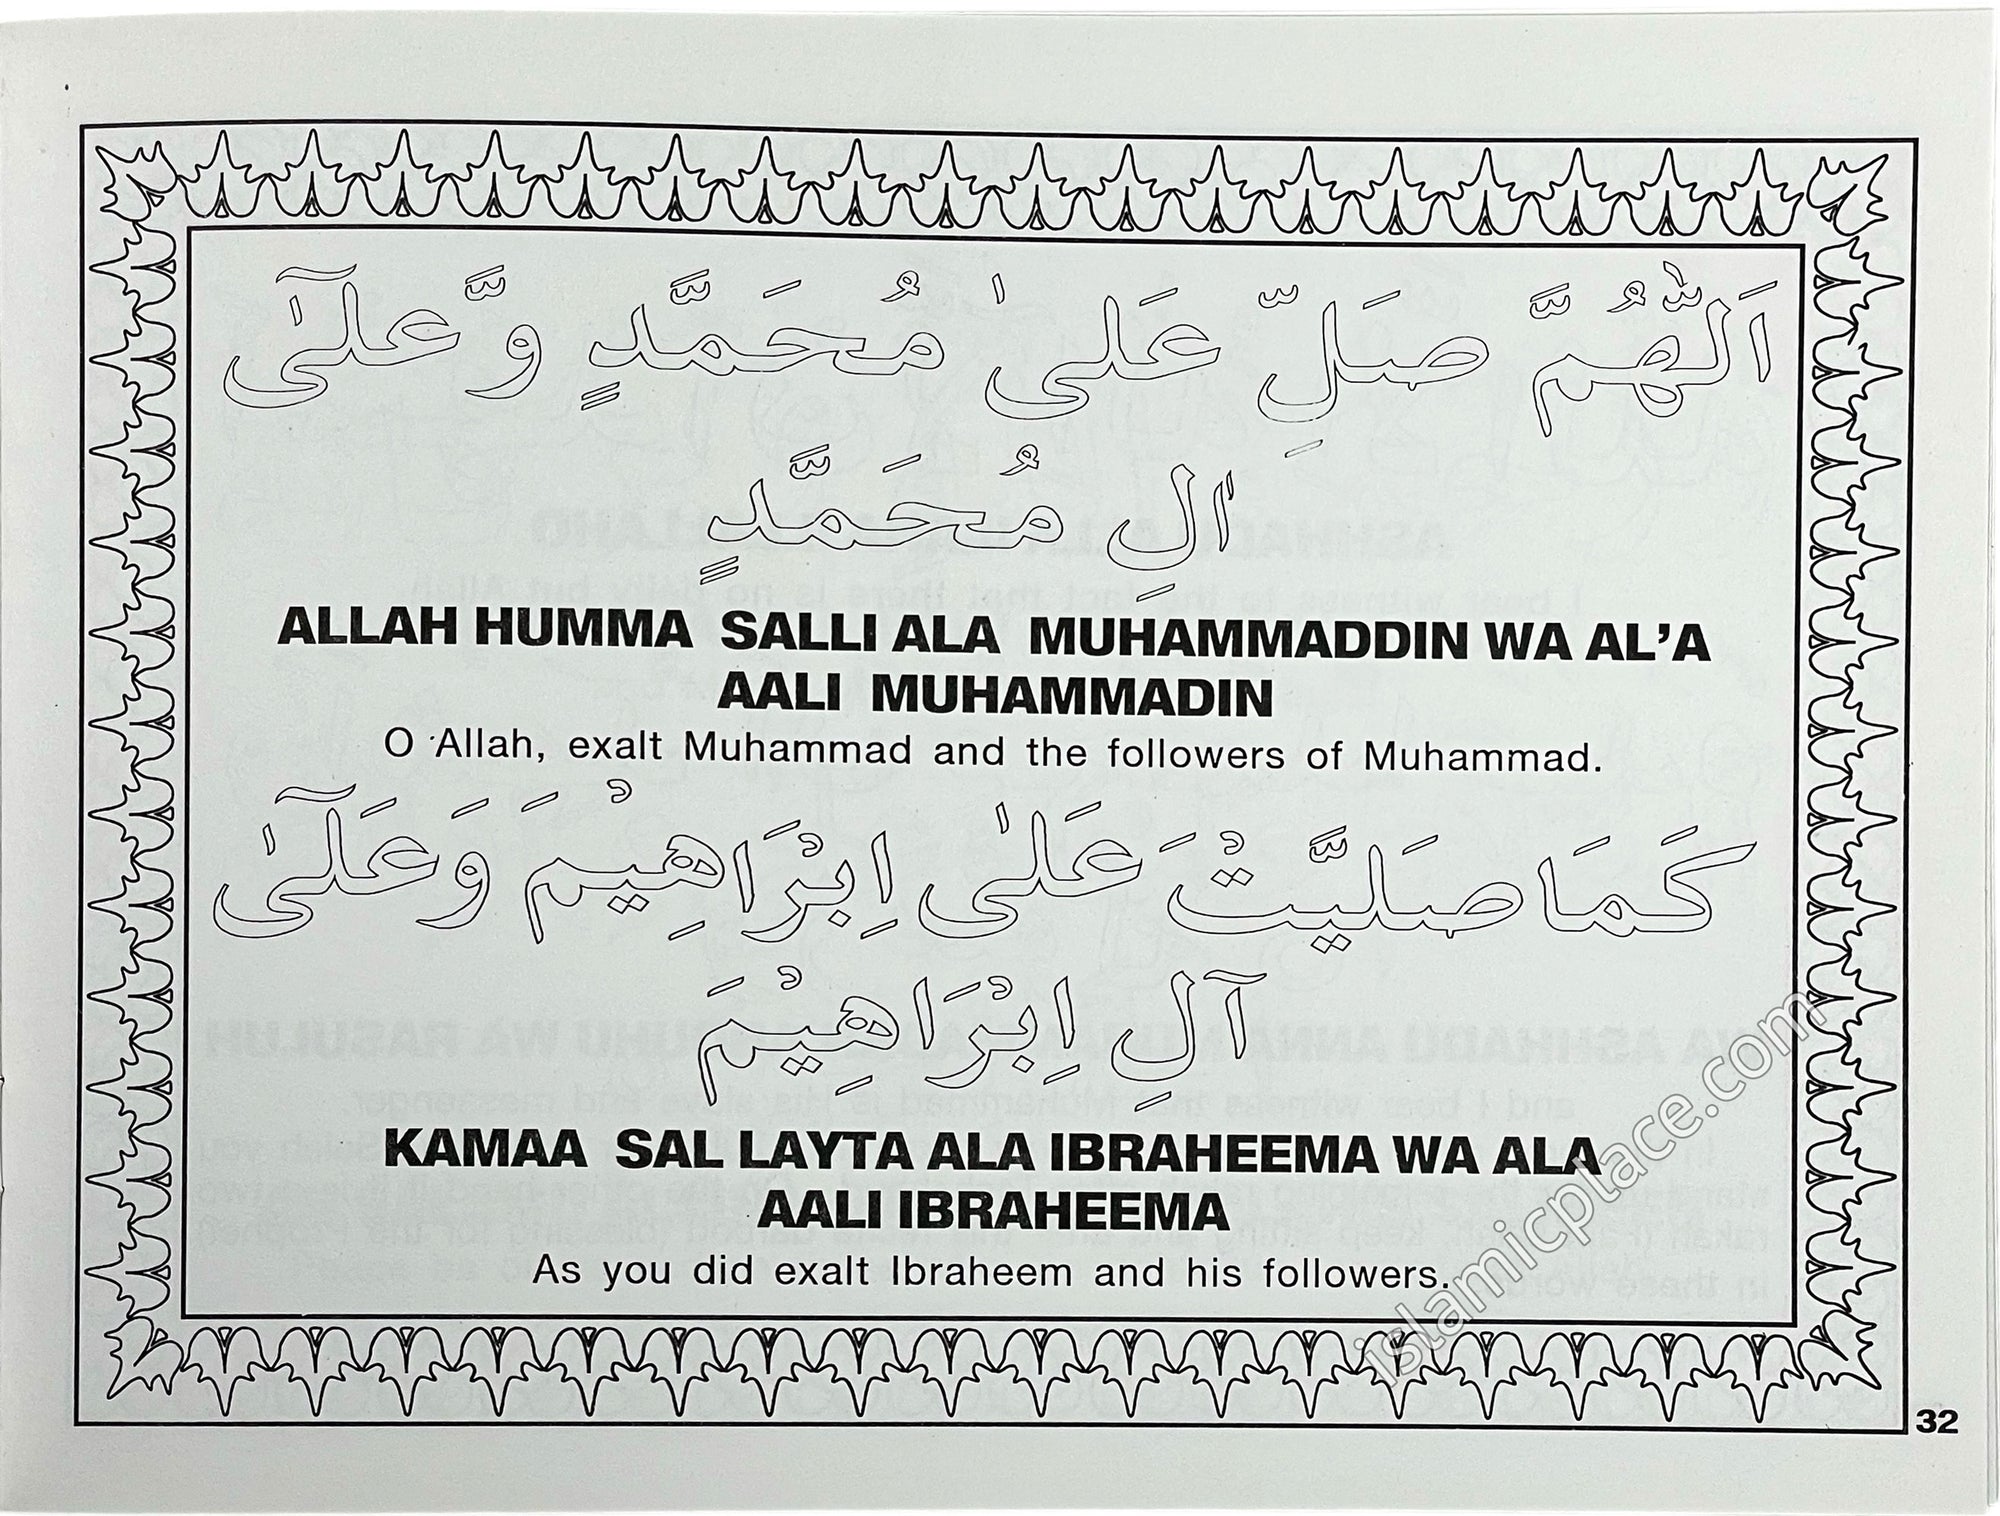 اَللّٰهُمَّ صَلِّ عَلىٰ مُحَمَّدٍ وَّعَلىٰٓ
اٰلِ مُحَمَّدٍ
ALLAH HUMMA SALLI ALA MUHAMMADDIN WA AL’A
AALI MUHAMMADIN
O Allah, exalt Muhammad and the followers of Muhammad.
كَمَا صَلَيَّتْ عَلىٰ اِبْرَاهِيْمَ وَعَلىٰٓ
آلِ اِبْرَاهِيْمَ
KAMAA SAL LAYTA ALA IBRAHEEMA WA ALA
AALI IBRAHEEMA
As you did exalt Ibraheem and his followers.
islamicplace.com
32